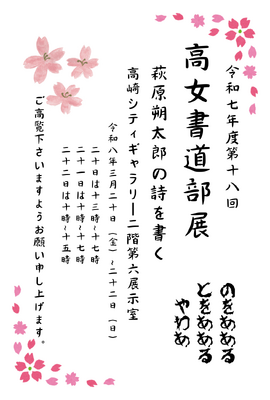 令和七年度第十八回
高女書道部展
萩原朔太郎の詩を書く
高崎シティギャラリー二階第六展示室
令和八年三月二十日（金）～二十二日（日）
二十日は十三時～十七時
二十一日は十時～十七時
二十二日は十時～十五時
ご高覧下さいますようお願い申し上げます。
のをああある
とをああある
やわあ